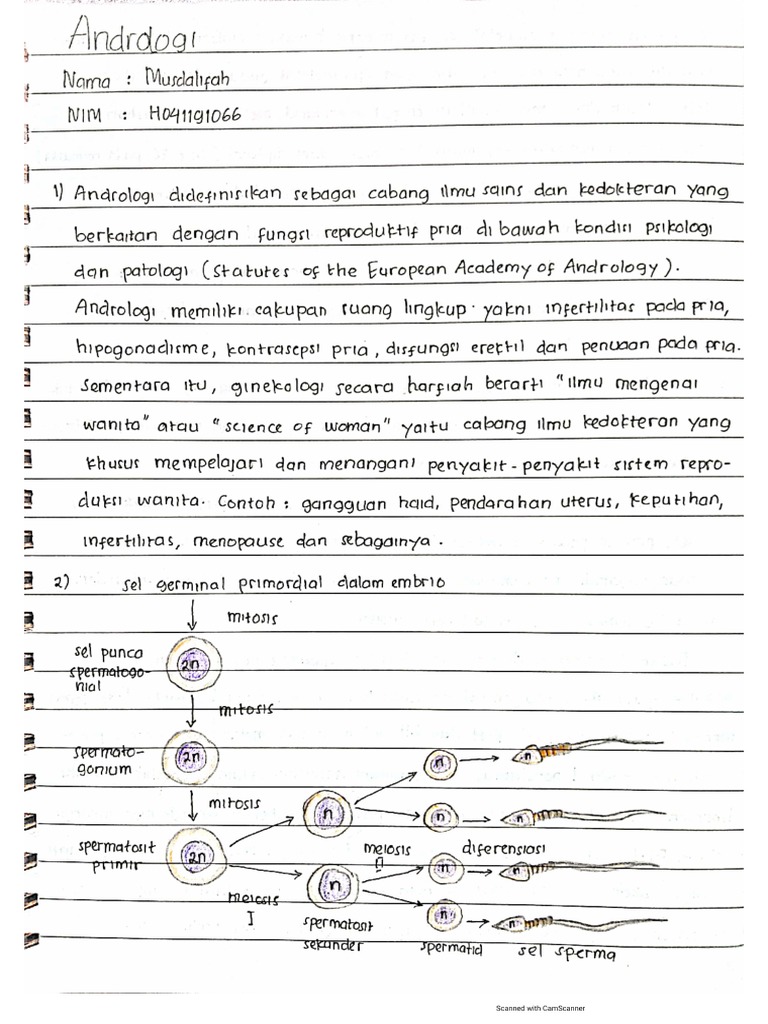 Andrologi
Nama : Musdalifah
NIM : H041191066
1) Andrologi didefinisikan sebagai cabang ilmu sains dan kedokteran yang
berkaitan dengan fungsi reproduktif pria di bawah kondisi psikologi
dan patologi (Statutes of the European Academy of Andrology).
Andrologi memiliki cakupan ruang lingkup yakni infertilitas pada pria,
hipogonadisme, kontrasepsi pria, disfungsi erektil dan penuaan pada pria.
Sementara itu, ginekologi secara harfiah berarti "ilmu mengenai
wanita" atau "science of woman" yaitu cabang ilmu kedokteran yang
khusus mempelajari dan menangani penyakit-penyakit sistem repro-
duksi wanita. Contoh : gangguan haid, pendarahan uterus, keputihan,
infertilitas, menopause dan sebagainya.
2) sel germinal primordial dalam embrio
mitosis
sel punca
spermatogo-
nial
2n
mitosis
spermato-
gonium
2n
mitosis
spermatosit
primir
2n
meiosis
I
n
n
spermatosit
sekunder
meiosis
II
n
n
n
n
spermatid
diferensiasi
n
n
n
n
sel sperma
Scanned with CamScanner